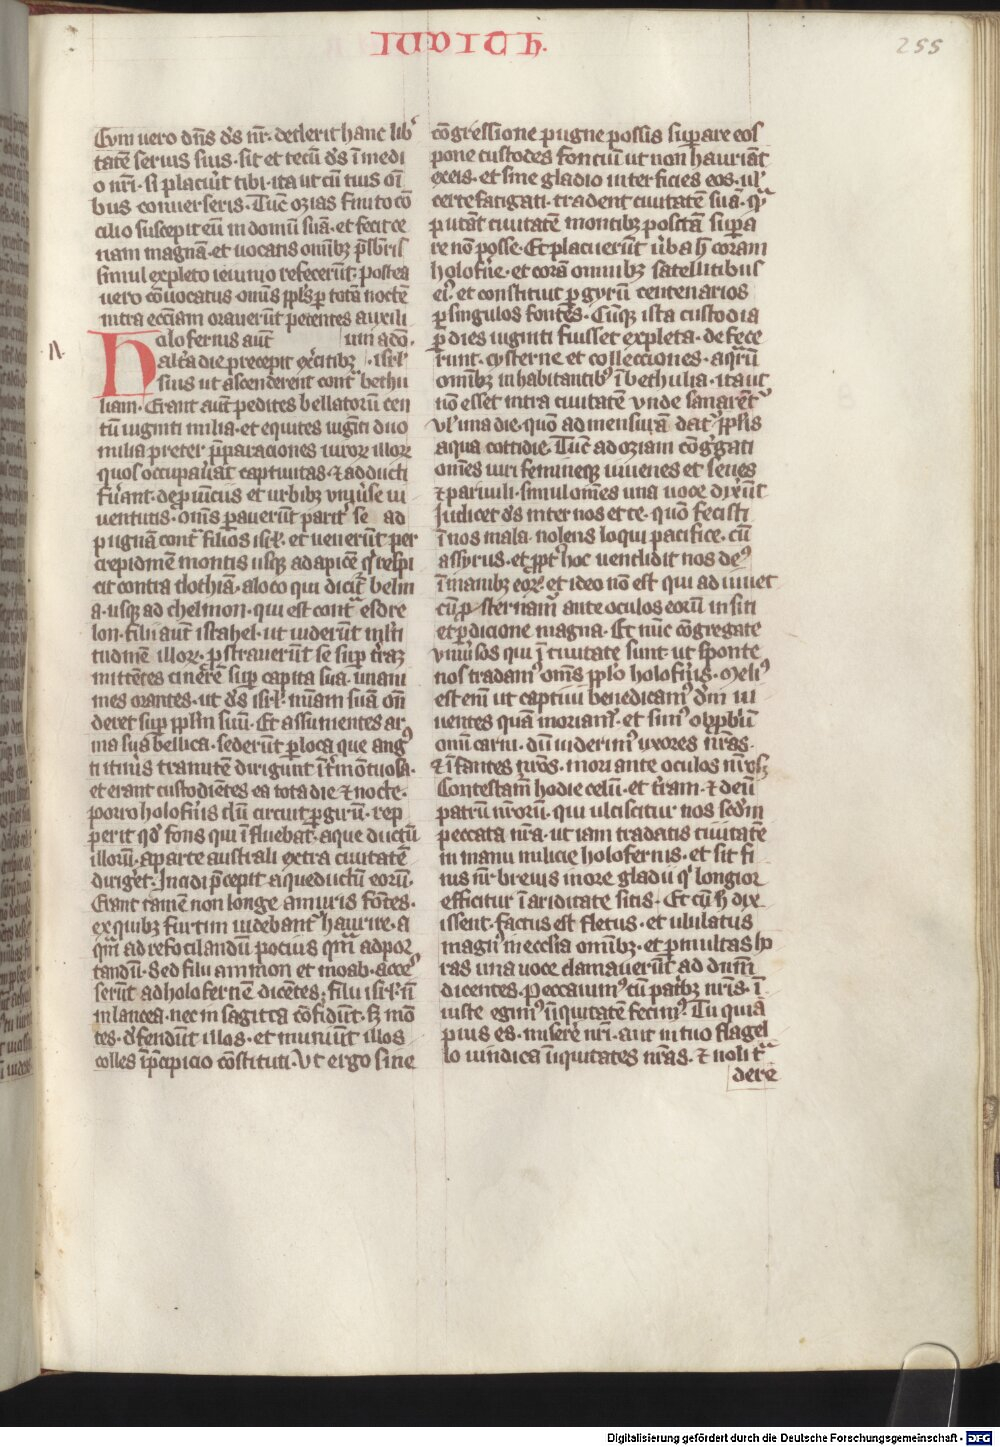 IUDITH.
255
Cvm uero dn̄s d̄s nr̄. dederit hanc lib᷑
tatē seruis suis. sit et tecū d̄s ī medi
o nr̄i. si placuīt tibi. ita ut cū tuis oī
bus conuerseris. Tūc ozias finito cō
cilio suscepit eū in domū suā. et fecit ce
nam magnā. et uocatis omībꝫ p̄sbīris
simul expleto ieiunio refecerūt. postea
uero cōuocatus. omīs ppl̄s ꝑ totā noctē
intra eccīam orauerūt petentes auxili
Holofernis aūt um a deo.
alt̄a die precepit exc̄itibꝫ. isrl̄.
suis ut ascenderent cont᷑ bethu
liam. Erant aūt pedites bellatorū cen
tū uiginti milia. et equites uigīti duo
milia preter p̄paraciones uiroꝝ illoꝝ
quos occupau᷑at captiuitas. ⁊ adducti
fu᷑ant. de ꝓuīcus et urbibꝫ vniu᷑se iu
uentutis. Om̄s ꝑauerūt parit᷑ se ad
pugnā cont᷑ filios isrl̄. et uenerūt per
crepidinē montis usqꝫ ad apicē q᷑ respi
cit contra dothiā. a loco qui dicit᷑ belm
a. usqꝫ ad chelmon. qui est cont᷑ esdre
lon. filii aūt istahel. ut uiderūt ml̄ti
tudinē illoꝝ. ꝓstrauerūt se sup t᷑raꝫ
mittētes cinerē sup capita sua. unani
mes orantes. ut d̄s isrl̄. mīam suā on̄
deret sup ppl̄m suū. Et assumentes ar
ma sua bellica. sederūt ꝑ loca que angꝰ
ti itin᷑is tramitē dirigunt īt᷑ mōtuosa.
et erant custodiētes ea tota die ⁊ nocte.
porro holofn᷑is dū circuit ꝑ girū. rep
perit qd̓ fons qui īfluebat. aque ductū
illoꝝ. a parte australi extra ciuitatē
diriget. Incidi p̄cepit aqueductū eorū.
Erant tamen non longe a muris fōtes.
ex quibꝫ furtim uidebant᷑ haurire. a
qm̄ ad refocilandū pocius qm̄ ad por
tandū. Sed filii ammon et moab. accesꝰ
serūt ad holofernē dicētes. filii isrl̄. n̄
in lancea. nec in sagitta cōfidūt. sꝫ mō
tes. d̓fendūt illos. et muniūt illos
colles ī p̄cipicio cōstituti. Vt ergo sine
cōgressione pugne possis suꝑare eos
pone custodes fonciū ut non hauriāt
ex eis. et sine gladio interficies eos. ul̓
certe fatigati. tradent ciuitatē suā. q᷑
putāt ciuitatē montibꝫ positā supa
re nō posse. Et placuerūt v᷑ba h̄ coram
holofn᷑e. et corā omnibꝫ satellitibus
eiꝰ. et constituit ꝑ gyrū centenarios
ꝑ singulos fontes. Cūqꝫ ista custodia
ꝑ dies uiginti fuisset expleta. defece
runt. cysterne et collecciones. aq᷑rū
omībꝫ inhabitantibꝰ ī bethulia. ita ut
nō esset intra ciuitatē vnde sciarēt᷑
vl̓ una die. quō ad mensurā dat᷑ ppl̄is
aqua cottidie. Tūc ad oziam cōg᷑gati
omēs uiri femineqꝫ iuuenes et senes
⁊ paruuli. simul omēs una uoce dix᷑ūt
Iudicet d̄s inter nos et te. quō fecisti
ī nos mala. nolens loqui pacifice. cū
assyrus. et ppt᷑ hoc uendidit nos deꝰ
ī manibꝫ eoꝝ. et ideo nō est qui adiuuet
cū ꝓsternam᷑ ante oculos eorū in siti
et ꝑdicione magna. Et nūc cōgregate
vniu᷑sos qui ī ciuitate sunt. ut sponte
nos tradamꝰ om̄s pplo holofn᷑is. Meliꝰ
est em̄ ut captiui benedicamꝰ dm̄ ui
uentes quā moriam᷑. et simꝰ obprb̓ūm
omī carni. dū uiderimꝰ uxores nr̄as.
⁊ īfantes nr̄os. mori ante oculos nr̄os
Contestam᷑ hodie celū. et t᷑ram. ⁊ deū
patrū nr̄orū. qui ulciscitur nos secdm̄
peccata nr̄a. ut iam tradatis ciuitatē
in manu milicie holofernis. et sit fi
nis nr̄ breuis in ore gladii q᷑ longior
efficitur ī ariditate sitis. Et cū h̄ dix
issent. factus est fletus. et ululatus
magnꝰ in ecclesia omībꝫ. et ꝑ multas ho
ras una uoce clamauerūt ad dnm̄
dicentes. Peccauimꝰ cū patribꝫ nr̄is. ī
iuste egimꝰ īiquitatē fecimꝰ. Tu quia
pius es. miserē nr̄i. aut in tuo flagel
lo uindica īiquitates nr̄as. ⁊ noli t᷑
dere
Digitalisierung gefördert durch die Deutsche Forschungsgemeinschaft - DFG